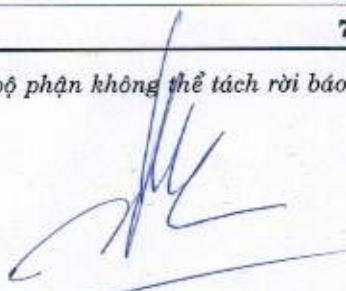 7
bộ phận không thể tách rời báo